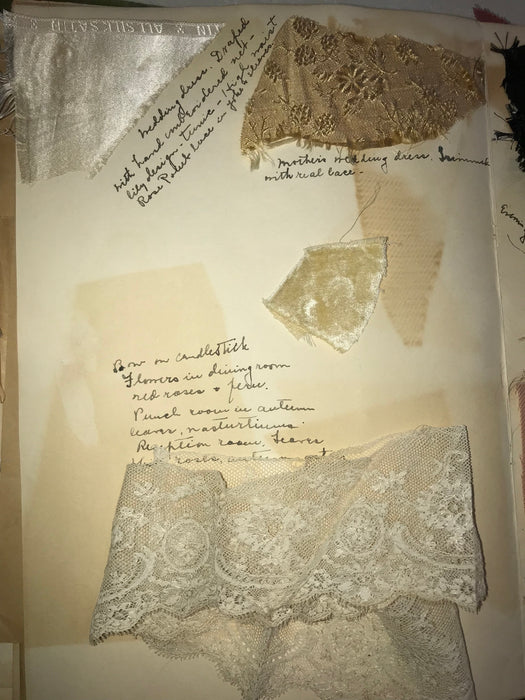 IN & ALL SILK SATIN
Wedding dress. Draped
with hand embroidered net -
lily design - tunic - High waist
Rose Point lace on yoke & sleeves
Mother's wedding dress. Trimmed
with real lace -
Bow on candlestick
Flowers in dining room
red roses & fern.
Punch room in autumn
leaves, nasturtiums.
Reception room, leaves
roses, autumn